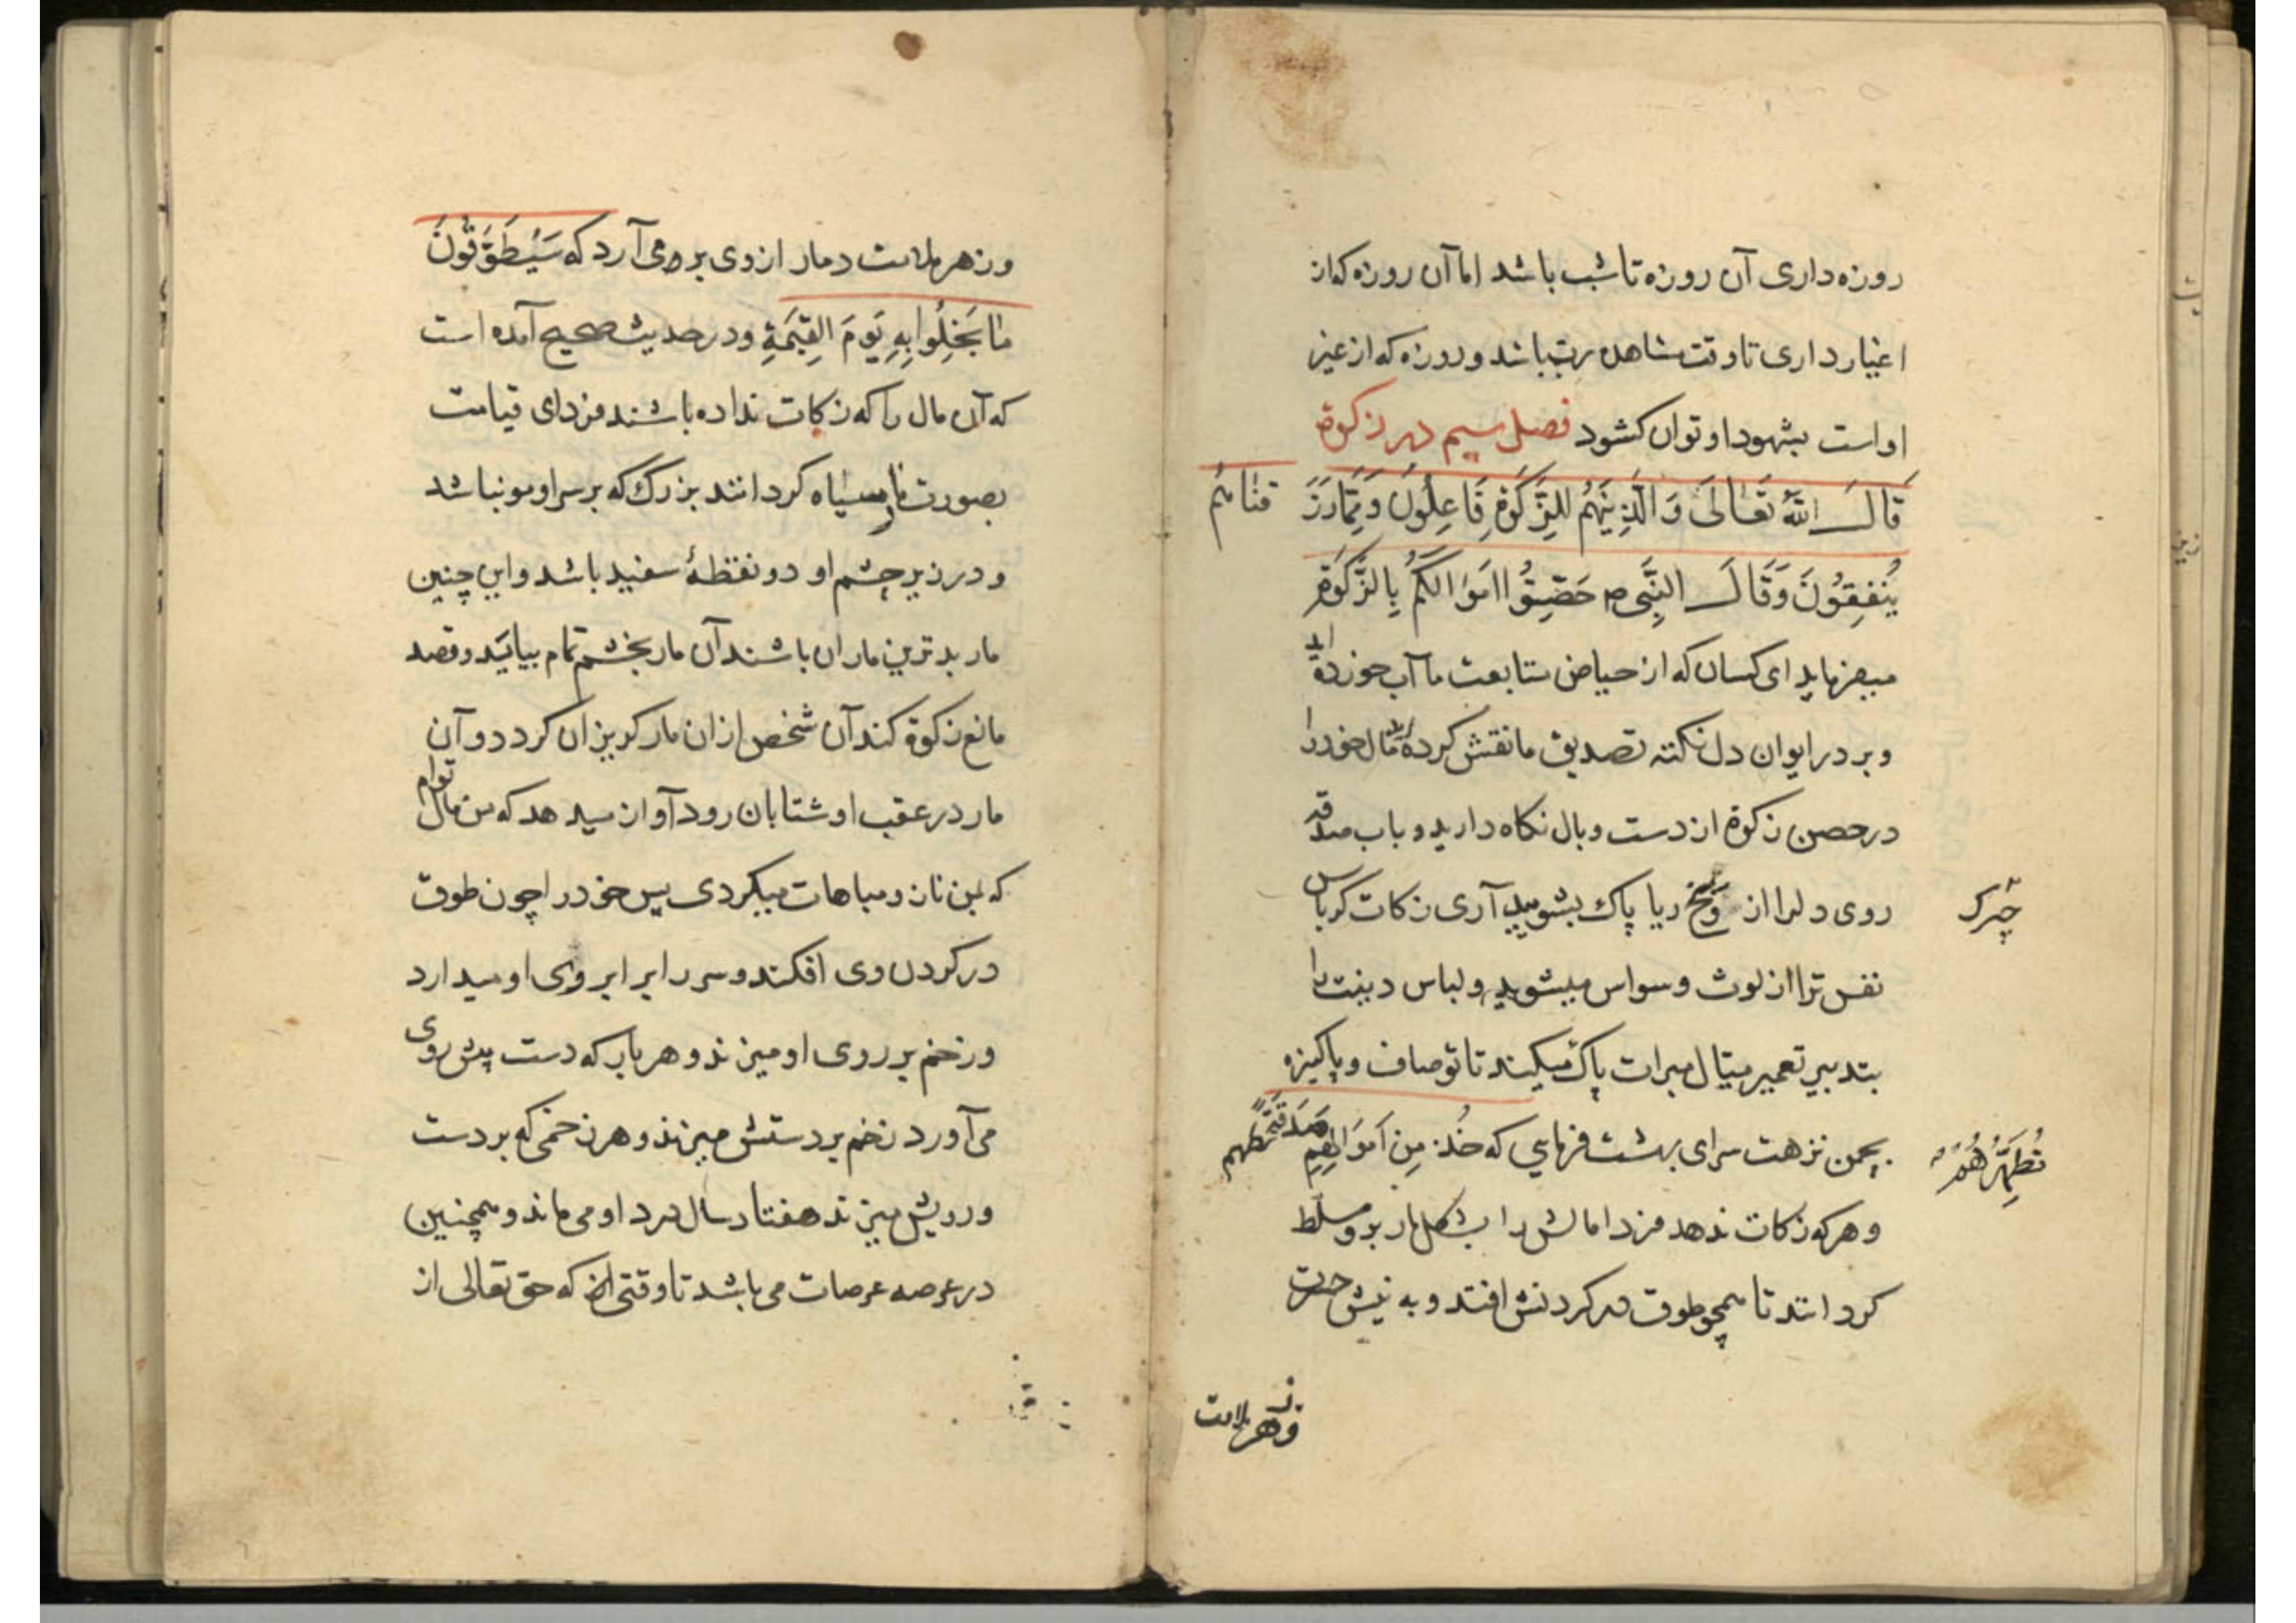 روزه داری آن روزه تا شب باشد اما آن روزه که از
اغیار داری تا وقت مشاهدهٔ رب باشد و روزه که از غیر
او است بشهود او توان کشود فصل سیم در زکوة
قَالَ اللّٰهُ تَعَالَى وَالَّذِينَهُمْ لِلزَّكَوةِ فَاعِلُونَ وَمِمَّا رَزَ
قناهُم
يُنْفِقُونَ وَقَالَ النَّبِي ص حَصِّنُوا اَمْوَالَكُمْ بِالزَّكَوةِ
میفرماید ای کسان که از حیاض متابعت ما آب خورده اید
و بر در ایوان دل نکته تصدیق ما نقش کرده اید مال خود را
در حصن زکوة از دست وبال نکاه دارید و باب صدقه
روی دلرا از وَسَخ ریا پاک بشویید آری زکات کرباس
چرک
نفس ترا از لوث وسواس میشوید و لباس دینت را
بتدبیر تعمیر میتال مبرات پاک میکند تا تو صاف و پاکیزه
بچمن نزهت سرای بهشت فرمایی که خُذ مِن اَموَالِهِم صَدَقَةً تطهرهم
تُطَهِّرُهُمْ
و هر که زکات ندهد فردا مالش را بشکل مار برو مسلط
کردانند تا همچو طوق در کردنش افتد و به نیش حسرت
وزهر ملامت
وزهر ملامت دمار از وی بر می آرد که سَيُطَوَّقُونَ
مَا بَخِلُوا بِهِ يَومَ القِيٰمَةِ و در حدیث صحیح آمده است
که آن مال را که زکات نداده باشند فردای قیامت
بصورت مار سیاه کردانند بزرک که بر سر او مو نباشد
و در زیر چشم او دو نقطهٔ سفید باشد و این چنین
مار بدترین ماران باشند آن مار بخشم تمام بیاید و قصد
مانع زکوة کند آن شخص از ان مار کریزان کردد و آن
مار در عقب او شتابان رود آواز میدهد که من مال توام
که بمن ناز و مباهات میکردی پس خود را چون طوق
در کردن وی افکند و سر را برابر روی او میدارد
و زخم بر روی او میزند و هر بار که دست پیش روی
می آورد زخم بر دستش میزند و هر زخمی که بر دست
و رویش میزند هفتاد سال درد او می ماند و همچنین
در عرصه عرصات می باشد تا وقتی که حق تعالی از